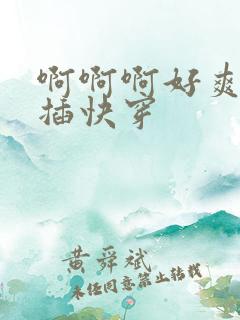 啊啊啊好爽
插快穿
黄舜斌
未经同意禁止转载